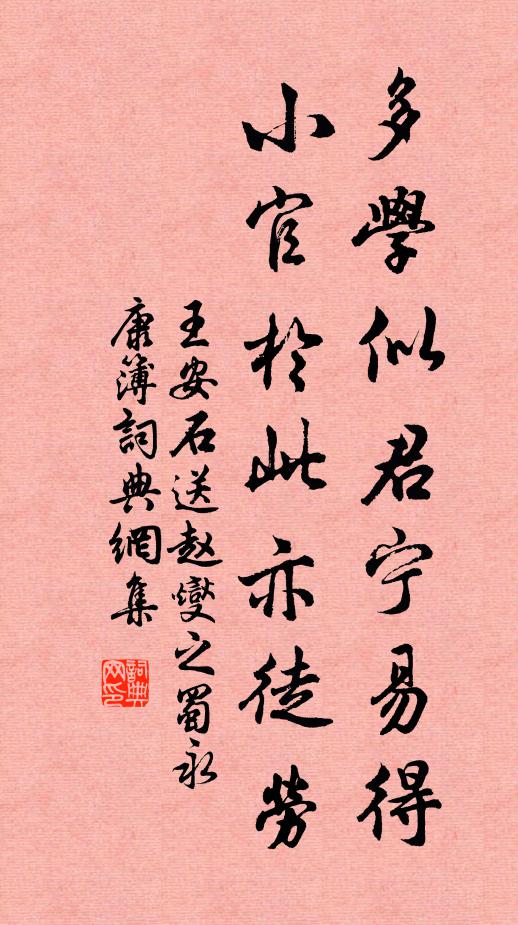 多學似君宁易得
小官於此亦徒勞
王安石送赵燮之蜀永
康簿詞典網集
詞典
网印